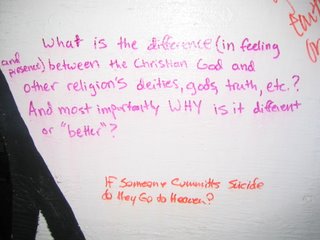 What is the difference (in feeling
and presence) between the Christian God and
other religion's deities, gods, truth, etc.?
And most importantly WHY is it different
or "better"?
If Someone Committs Suicide
do they Go to Heaven?